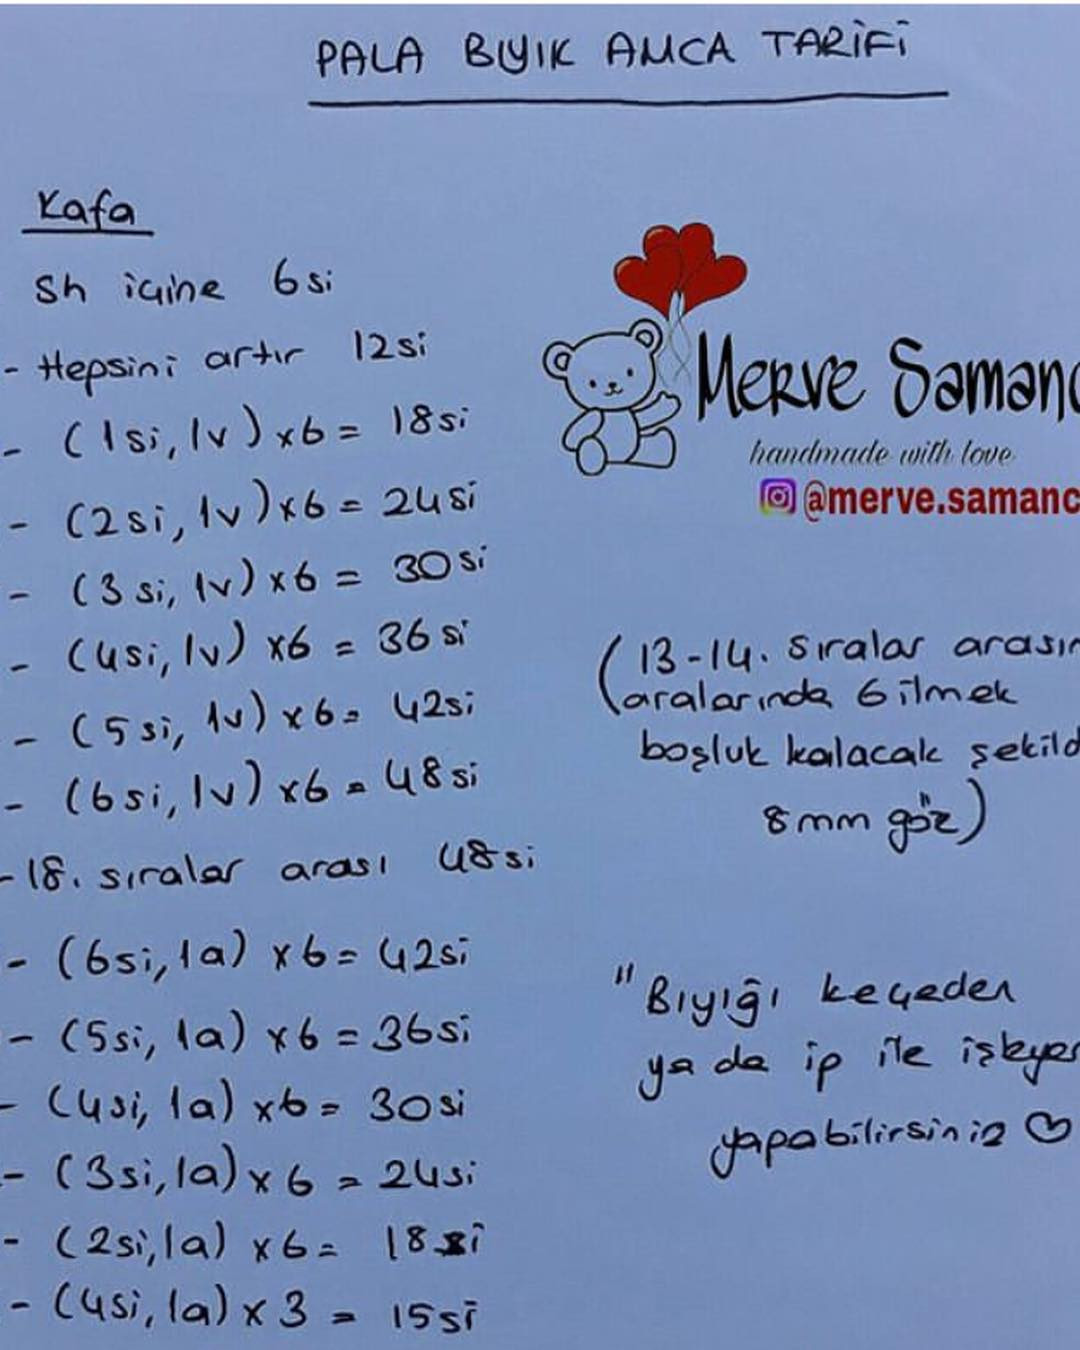 PALA BIYIK AMCA TARİFİ
Kafa
Sh içine 6si
- Hepsini artır 12si
- (1si, 1v) x6 = 18si
- (2si, 1v) x6 = 24si
- (3si, 1v) x6 = 30si
- (4si, 1v) x6 = 36si
- (5si, 1v) x6 = 42si
- (6si, 1v) x6 = 48si
-18. sıralar arası 48si
- (6si, 1a) x6 = 42si
- (5si, 1a) x6 = 36si
- (4si, 1a) x6 = 30si
- (3si, 1a) x6 = 24si
- (2si, 1a) x6 = 18si
- (4si, 1a) x 3 = 15si
Merve Samanc
handmade with love
@merve.samanc
(13-14. sıralar arasın
aralarında 6 ilmek
boşluk kalacak şekild
8mm göz)
"Bıyığı keçeden
ya da ip ile işleyer
yapabilirsiniz ♡